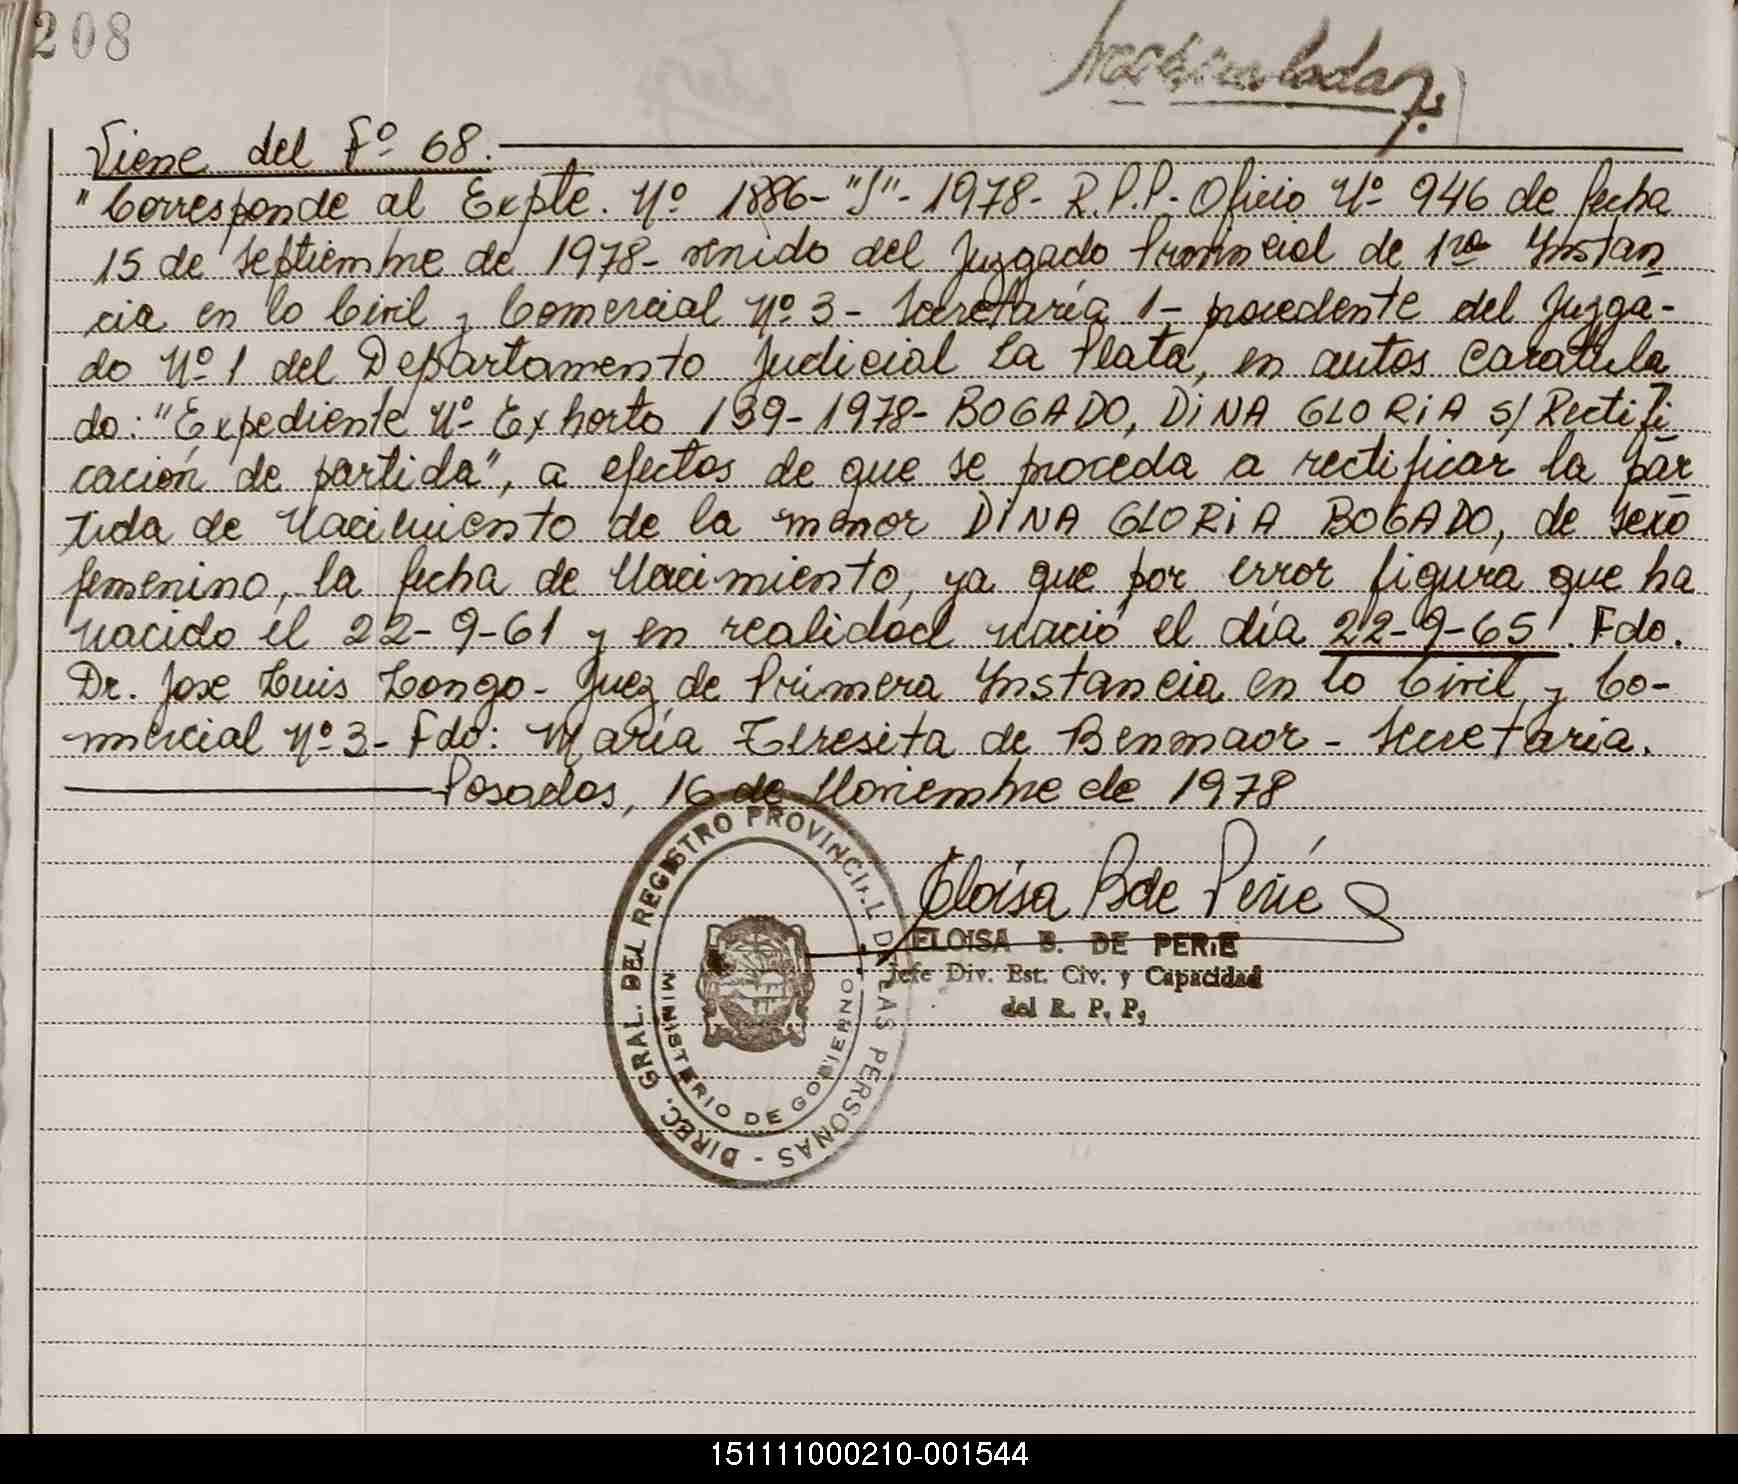 208
Viene del Fº 68.
"Corresponde al Expte. Nº 1886-"J"-1978- R.P.P.- Oficio Nº 946 de fecha
15 de septiembre de 1978- venido del Juzgado Provincial de 1ra Instan
cia en lo Civil y Comercial Nº 3 - Secretaría 1 - procedente del Juzga-
do Nº 1 del Departamento Judicial La Plata, en autos Caratula
do: "Expediente Nº Exhorto 139-1978- BOGADO, DINA GLORIA S/ Rectifi
cación de partida", a efectos de que se proceda a rectificar la par
tida de Nacimiento de la menor DINA GLORIA BOGADO, de sexo
femenino, la fecha de Nacimiento, ya que por error figura que ha
nacido el 22-9-61 y en realidad nació el día 22-9-65. Fdo.
Dr. Jose Luis Longo - Juez de Primera Instancia en lo Civil y Co-
mercial Nº 3 - Fdo: María Teresita de Benmaor - Secretaria.
Posadas, 16 de Noviembre de 1978
Eloisa B de Perié
ELOISA B. DE PERIE
Jefe Div. Est. Civ. y Capacidad
del R. P. P.
DIREC. GRAL. DEL REGISTRO PROVINCIAL DE LAS PERSONAS -
MINISTERIO DE GOBIERNO
151111000210-001544